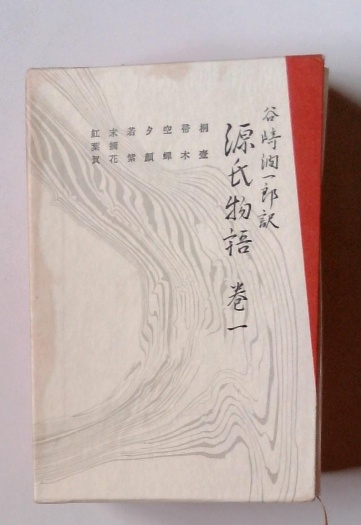 谷崎潤一郎訳
源氏物語 巻一
桐壺
帚木
空蝉
夕顔
若紫
末摘花
紅葉賀